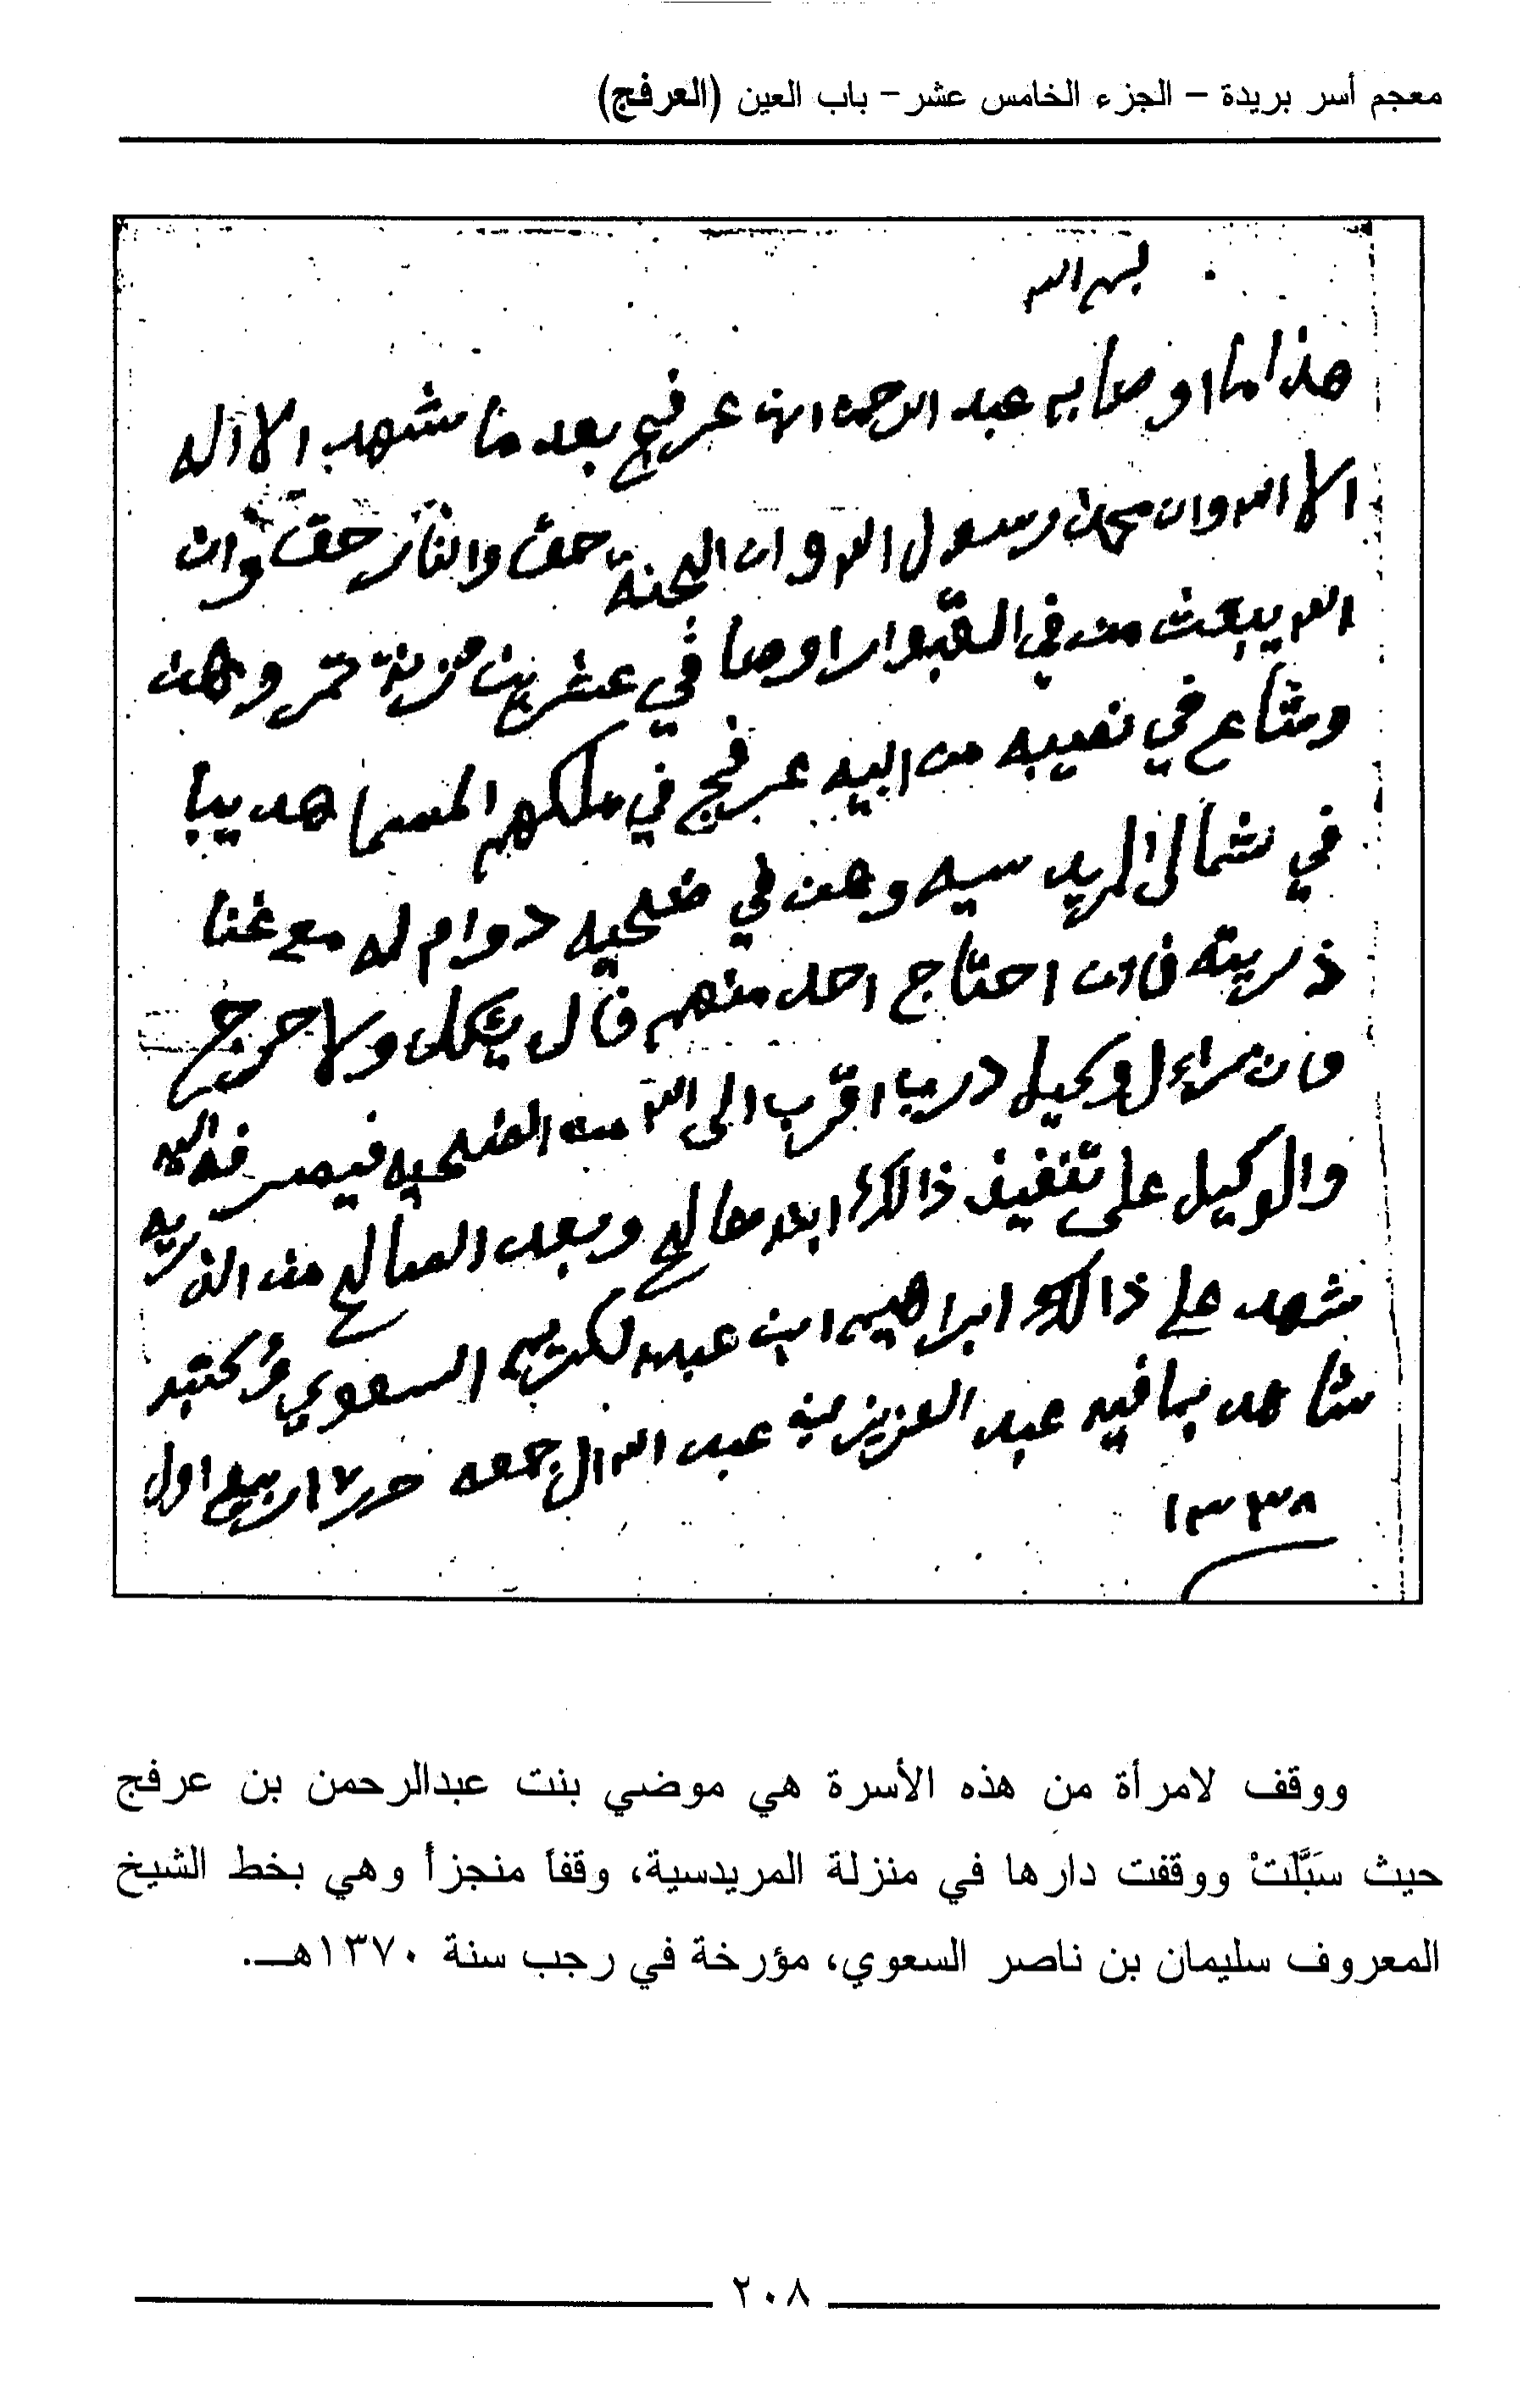 معجم أسر بريدة – الجزء الخامس عشر – باب العين (العرفج)
بسم الله
هذا ما اوصا به عبد الرحمن ابن عرفج بعد ما شهد الا اله
الا الله وان محمد رسول الله وان الجنة حق والنار حق وان
الله يبعث من في القبوار اوصا في عشرين وزنة تمر وهن
مشاع في نصيبه من ابيه عرفج في ملكهم المسما هديبا
في شمالي المريدسيه وهن في ضحيه دوام له مع غنا
ذريته فان احتاج احد منهم فال ياكل ولا حرج
وان راء الوكيل درب اقرب الى الله من الضحيه فيصرفه اليه
والوكيل على تنفيذ ذالك ابنه صالح وبعد الصالح من الذريه
شهد على ذالك ابراهيم ابن عبد لكريم السعوي وكتبه
شاهد بما فيه عبد العزيز بن عبد الله ال جمعه حرر ١٧ ربيع اول
١٣٣٨
ووقف لامرأة من هذه الأسرة هي موضي بنت عبدالرحمن بن عرفج
حيث سَبَّلَتْ ووقفت دارها في منزلة المريدسية، وقفاً منجزاً وهي بخط الشيخ
المعروف سليمان بن ناصر السعوي، مؤرخة في رجب سنة ١٣٧٠هـ.
٢٠٨